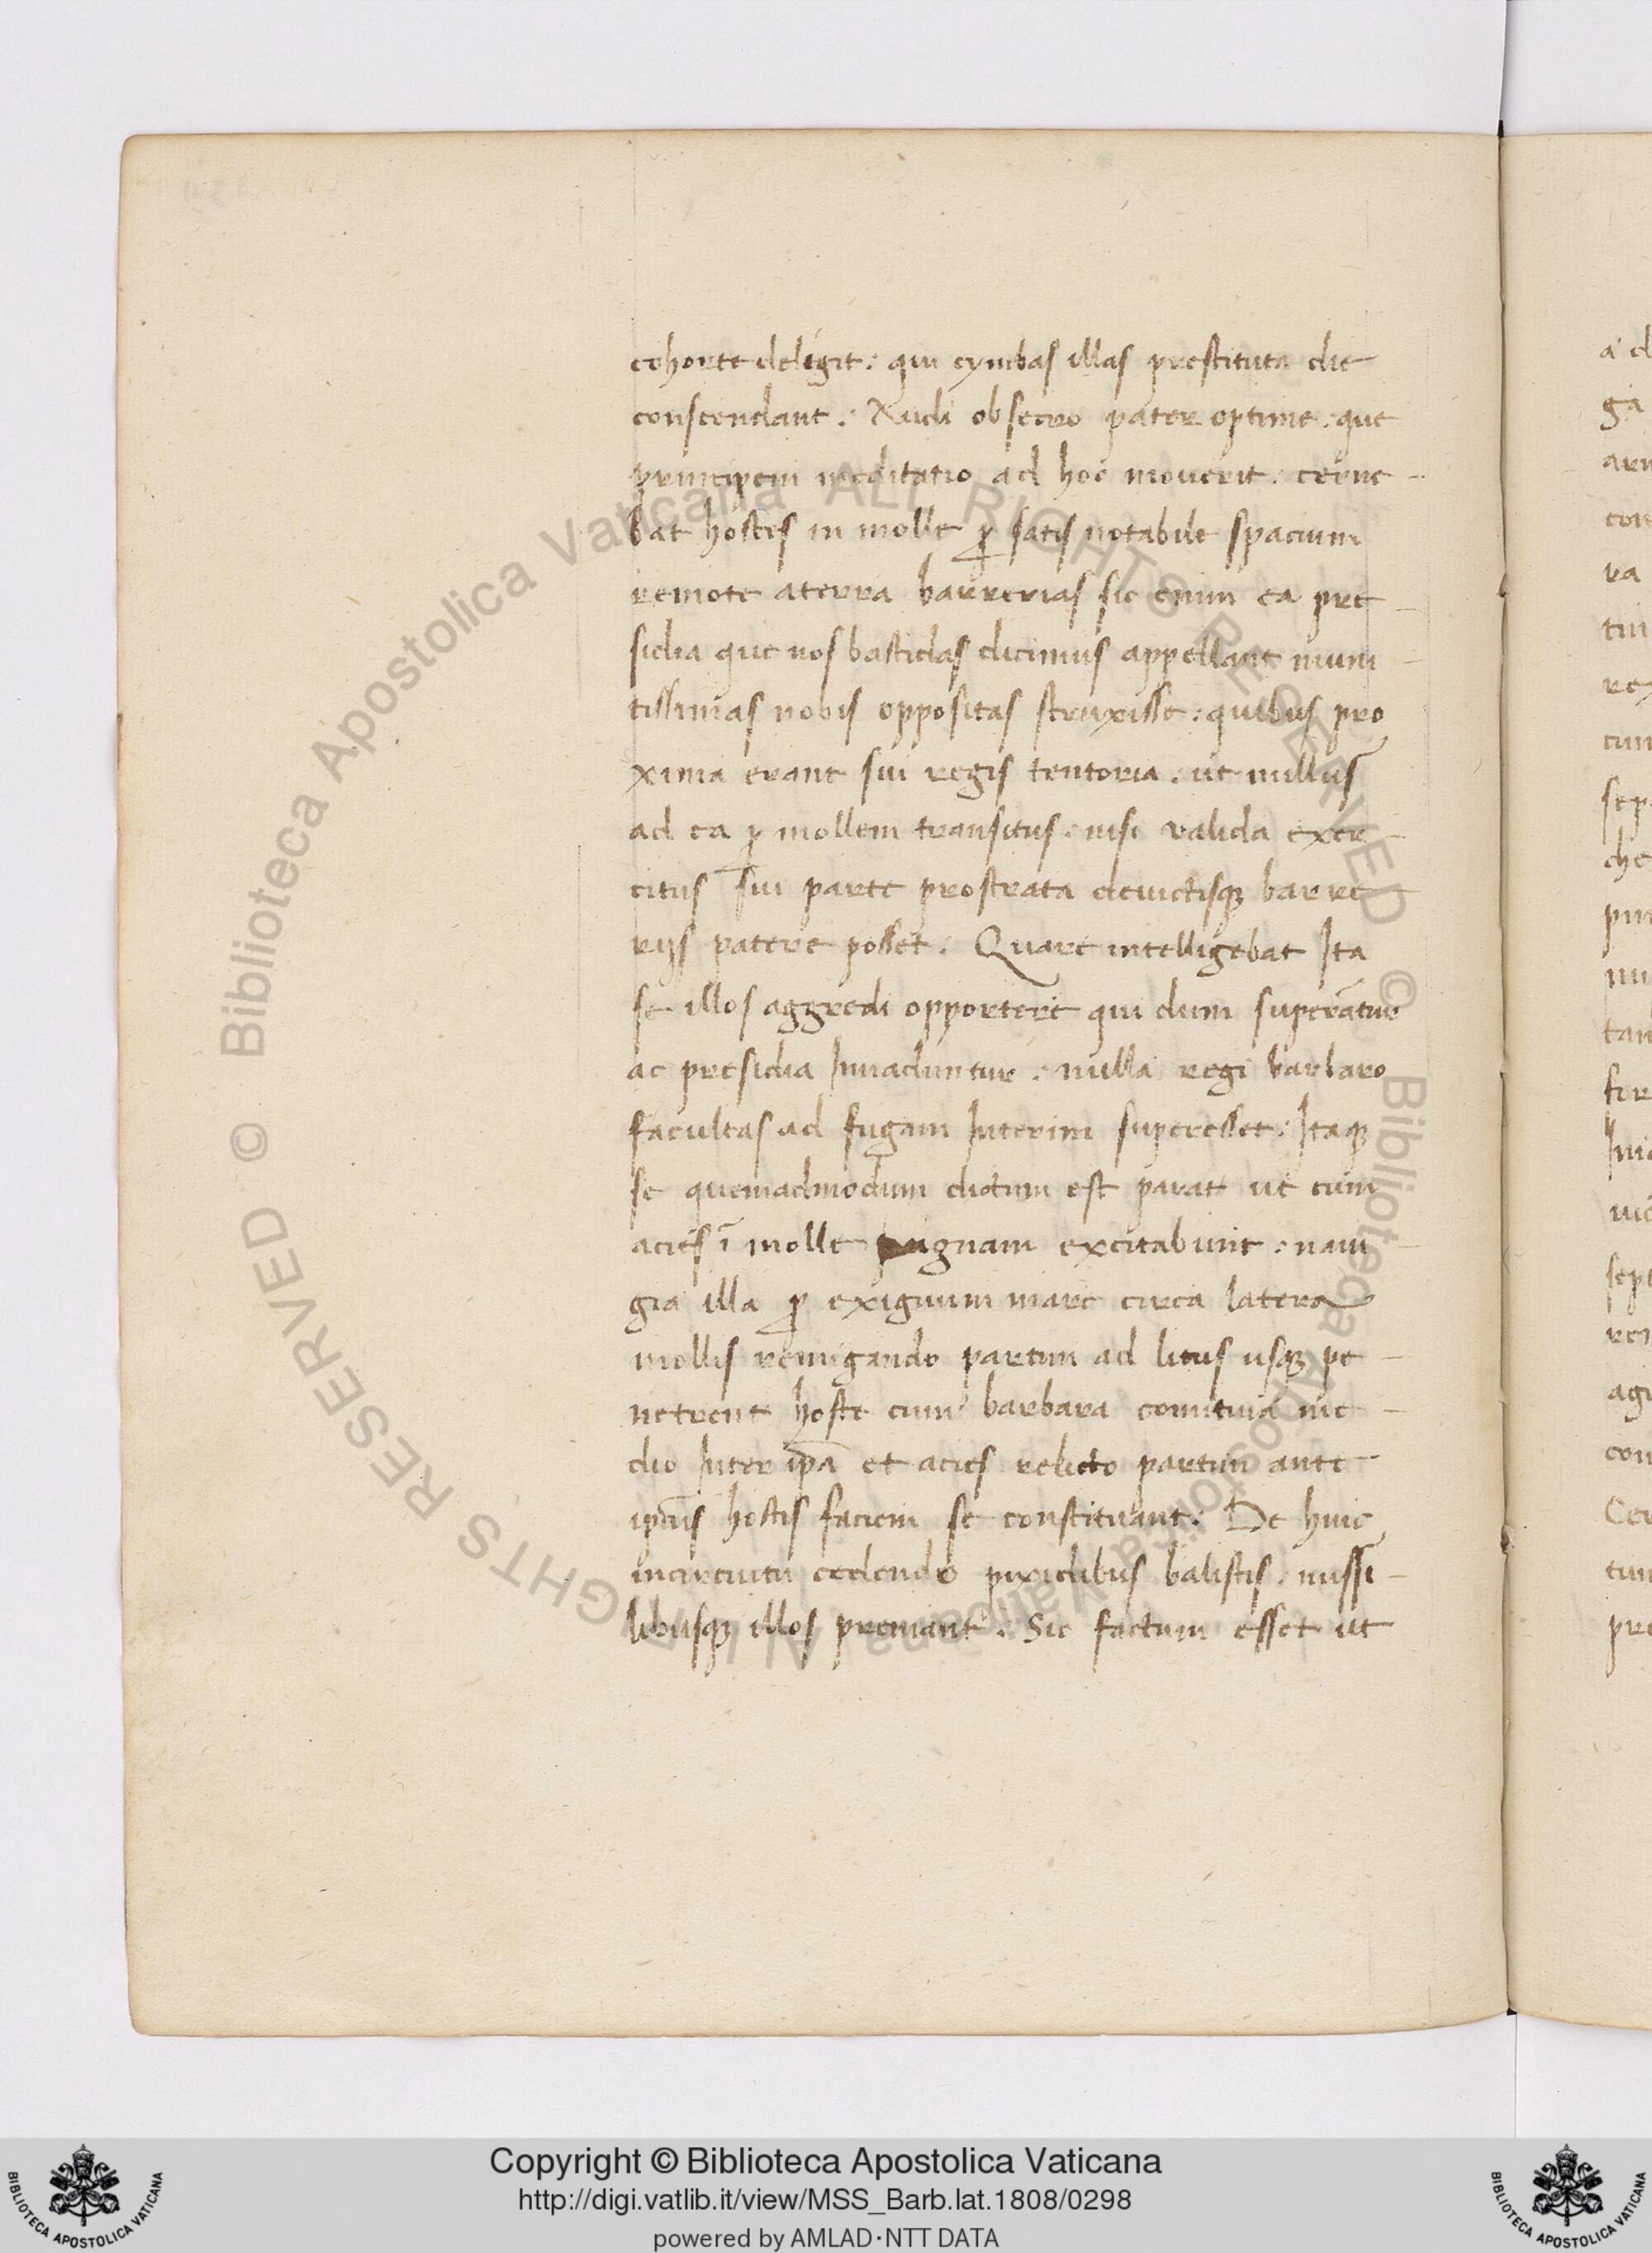 cohorte delegit: qui cymbas illas prestituta die
conscendant: Audi obsecro pater optime: que
principem meditatio ad hoc moverit. cerne-
bat hostes in molle ꝑ satis notabile spacium
remote aterra barrerias sic enim ea pre-
sidia que nos bastidas dicimus appellant muni-
tissimas nobis oppositas struxisse: quibus pro
xima erant sui regis tentoria. ut nullus
ad ea ꝑ mollem transitus. nisi valida exer-
citus sui parte prostrata devictisqꝫ barre-
rijs patere posset. Quare intelligebat Ita
se illos aggredi opportere qui dum superātur
ac presidia Invaduntur: nulla regi barbaro
facultas ad fugam Interim superesset: Itaqꝫ
se quemadmodum dictum est parat ut cum
acies ī molle pugnam excitabunt: navi-
gia illa ꝑ exiguum mare circa latera
mollis remigando partim ad litus usqꝫ pe-
netrent hoste cum barbara comitiva me-
dio Inter ip̄a et acies relicto partim ante
ip̄ius hostis faciem se constituant: De hinc
incircuitu cedendo pixidibus balistis. missi-
libusqꝫ illos premant: Sic factum esset ut
a d
ga
arm
con
ra
tui
rex
cum
sep
che
pu
nu
tan
for
Inic
vic
sept
rem
agi
con
Cer
tum
pre
© Biblioteca Apostolica Vaticana ALL RIGHTS RESERVED © Biblioteca Apostolica Vaticana ALL RIGHTS RESERVED
Copyright © Biblioteca Apostolica Vaticana
http://digi.vatlib.it/view/MSS_Barb.lat.1808/0298
powered by AMLAD·NTT DATA
BIBLIOTECA APOSTOLICA VATICANA
BIBLIOTECA APOSTOLICA VATICANA